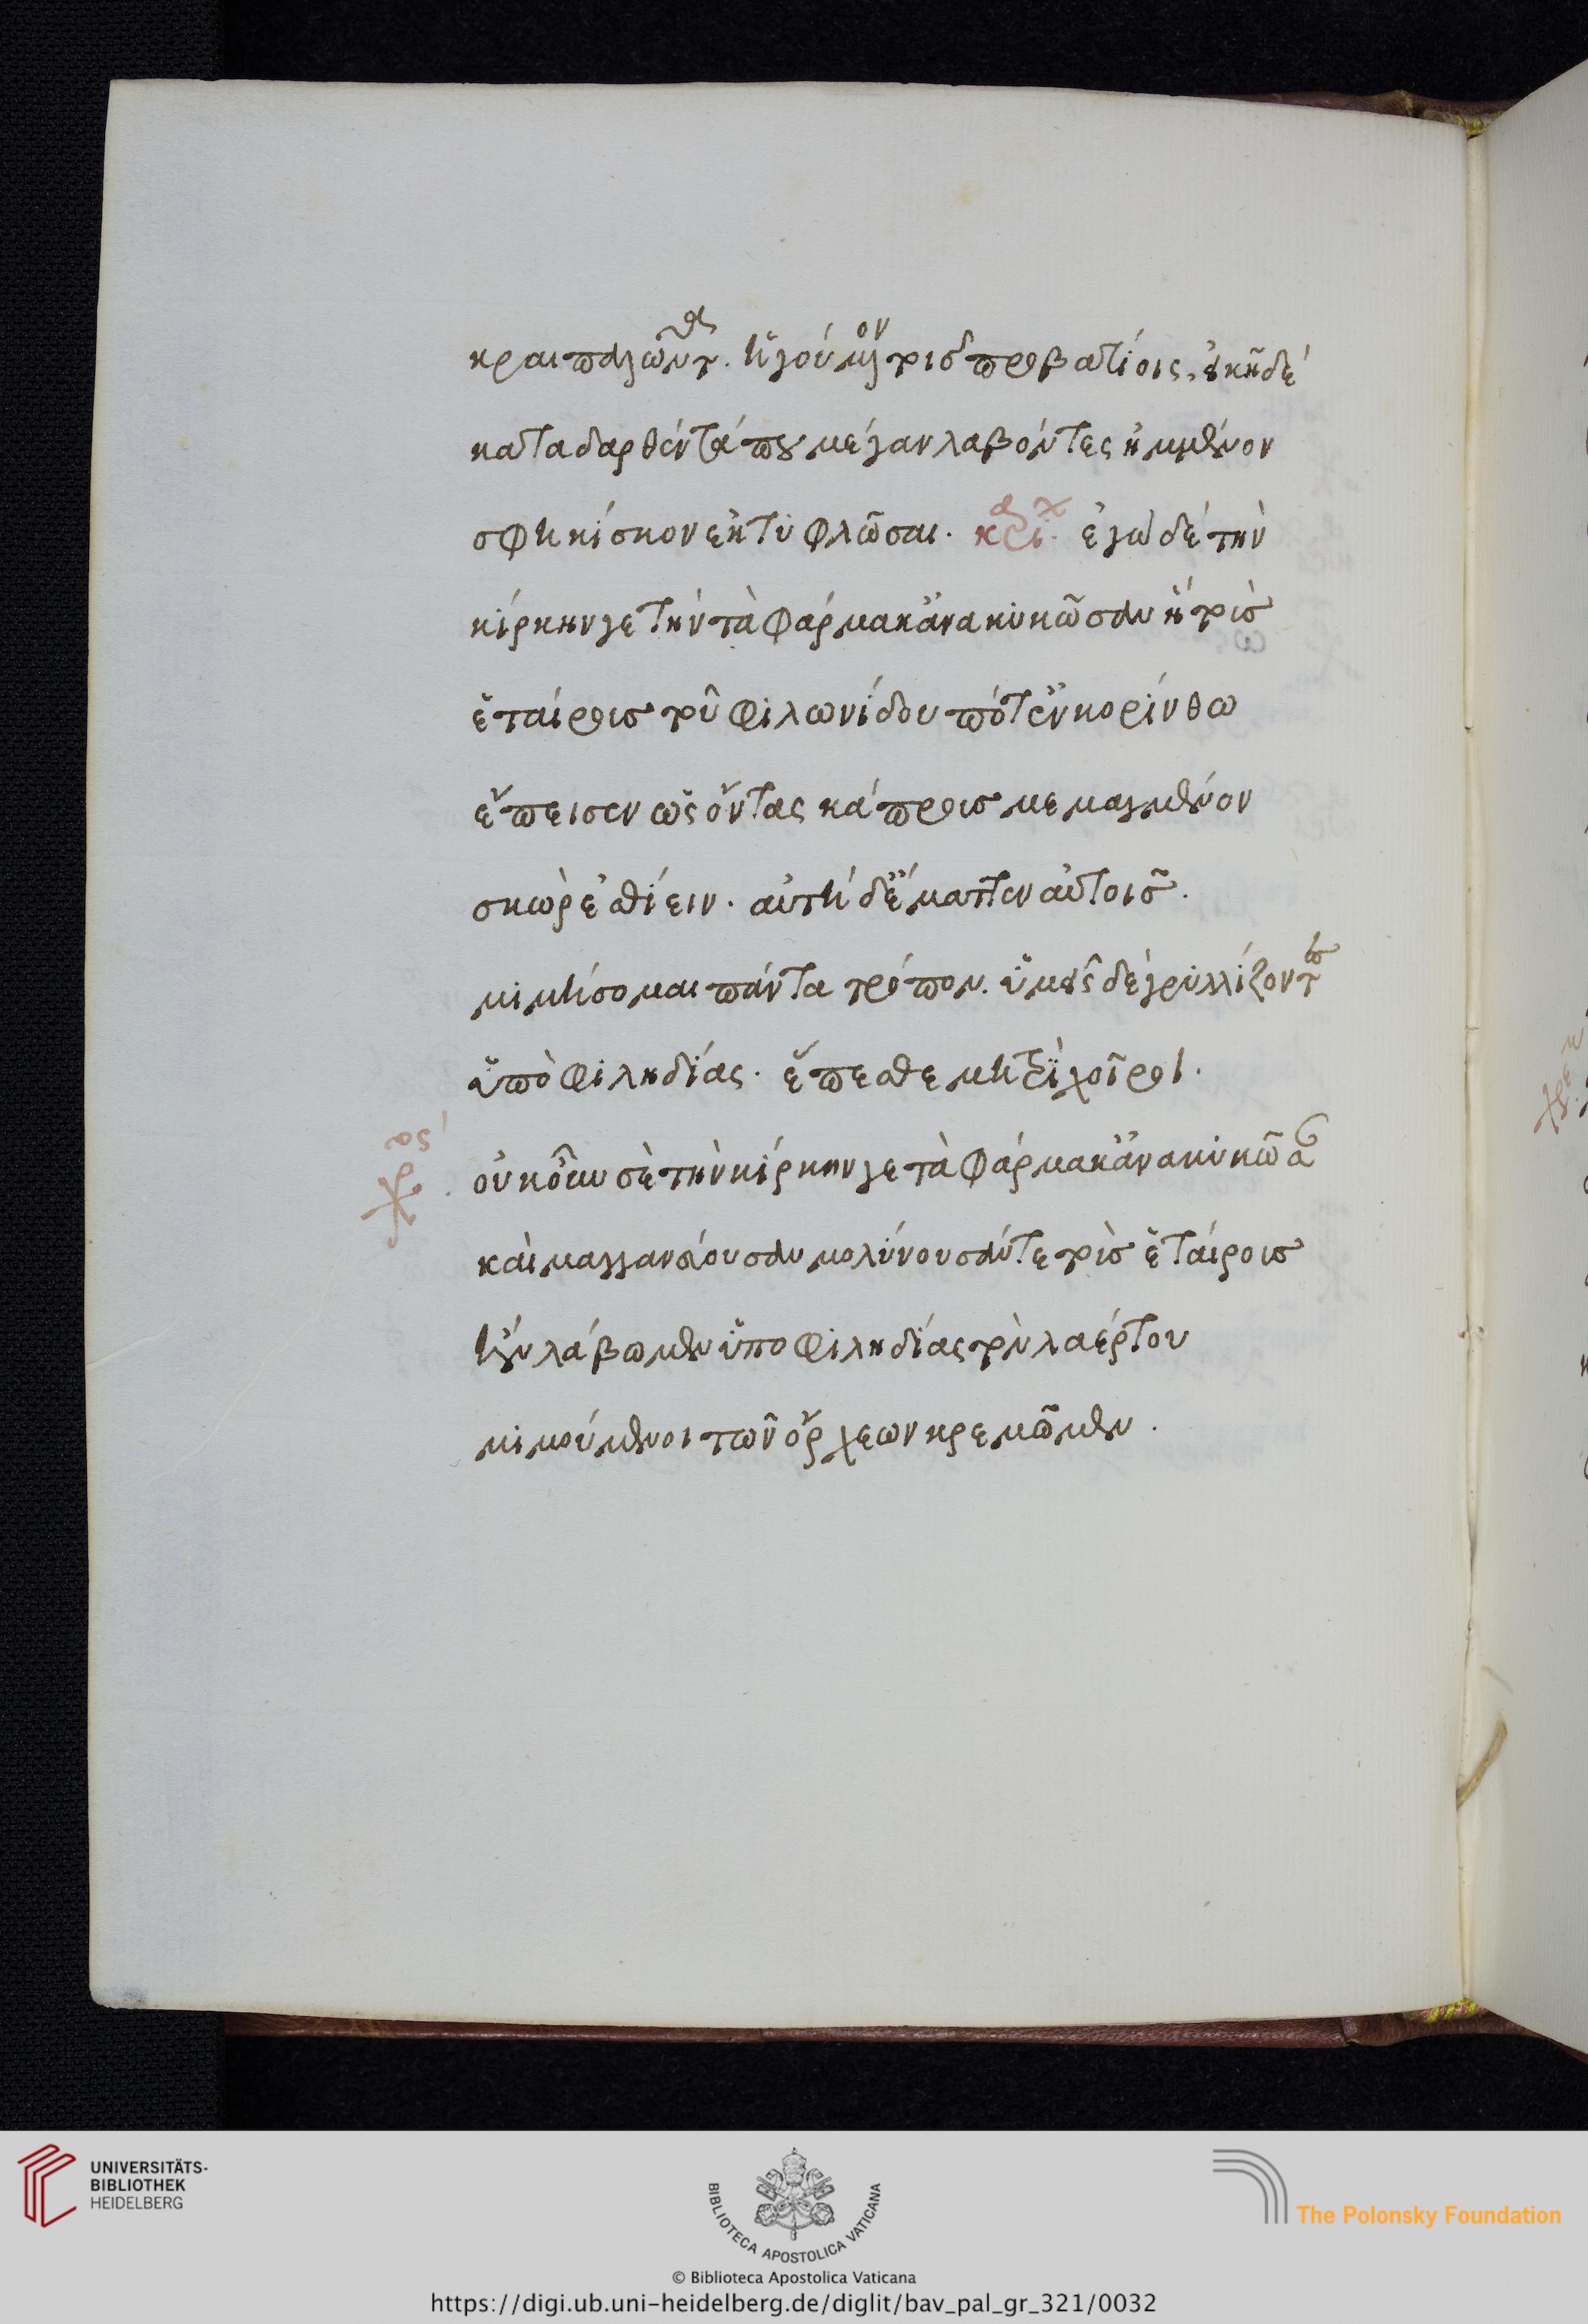 κραιπαλῶντα. ἡγούμενον τοῖς προβατίοις. εἰκῆ δέ
καταδαρθέντά που μέγαν λαβόντες ἡμμένον
σφηκίσκον ἐκτυφλῶσαι. καρι. ἐγὼ δέ τὴν
κίρκην γε τήν τὰ φάρμακ' ἀνακυκῶσαν ἣ τοὺς
ἑταίρους τοῦ φιλωνίδου ποτ' ἐν κορίνθω
ἔπεισεν ὡς ὄντας κάπρους μεμαγμένον
σκὼρ ἐσθίειν. αὐτὴ δ' ἔματτεν αὐτοῖς.
μιμήσομαι πάντα τρόπον. ὑμεῖς δὲ γρυλλίζοντες
ὑπὸ φιληδίας. ἔπεσθε μητρὶ χοῖροι.
χορός
οὐκοῦν σὲ τὴν κίρκην γε τὰ φάρμακ' ἀνακυκῶσαν
καὶ μαγγανεύουσαν μολύνουσάν τε τοὺς ἑταίρους
ἢν λάβωμεν ὑπο φιληδίας τὸν λαέρτου
μιμούμενοι τῶν ὄρχεων κρεμῶμεν.
UNIVERSITÄTS-
BIBLIOTHEK
HEIDELBERG
BIBLIOTECA APOSTOLICA VATICANA
The Polonsky Foundation
© Biblioteca Apostolica Vaticana
https://digi.ub.uni-heidelberg.de/diglit/bav_pal_gr_321/0032